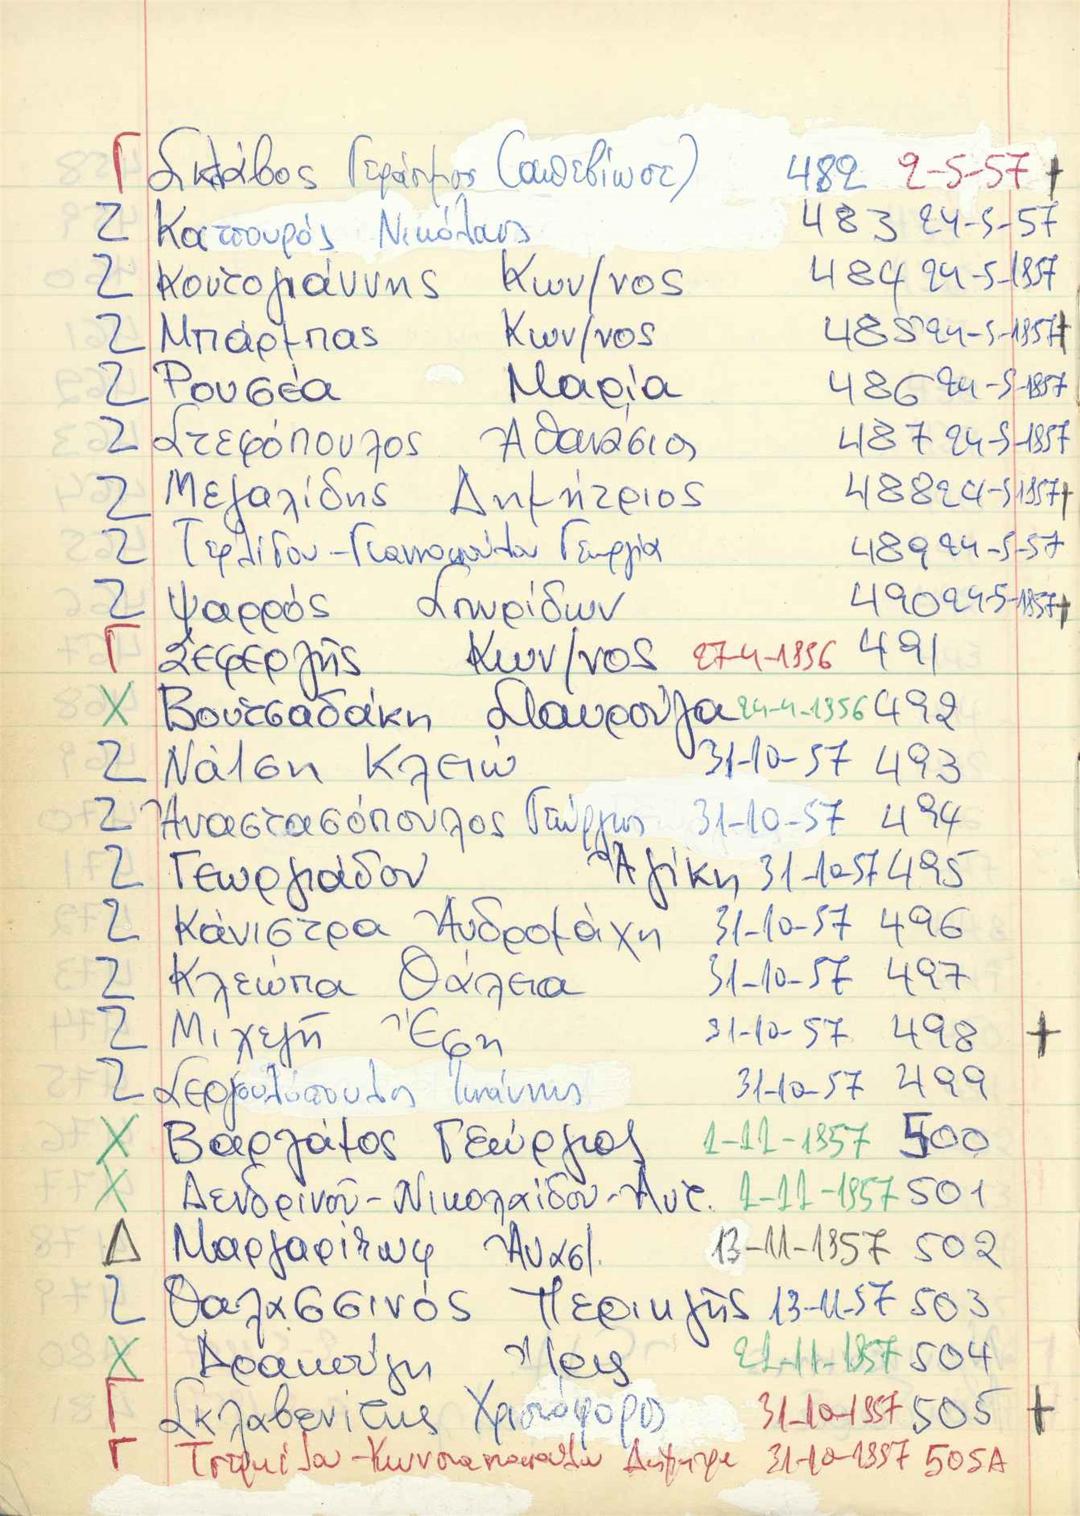 Γ Σκλάβος Γεράσιμος (απεβίωσε) 482 2-5-57 +
Ζ Κατσουρός Νικόλαος 483 24-5-57
Ζ Κουτογιάννης Κων/νος 484 24-5-1957
Ζ Μπάρμπας Κων/νος 485 24-5-1957 +
Ζ Ρουσέα Μαρία 486 24-5-1957
Ζ Στεφόπουλος Αθανάσιος 487 24-5-1957
Ζ Μεγαλίδης Δημήτριος 488 24-5-1957 +
Ζ Τερλίδου-Γιαννοπούλου Γεωργία 489 24-5-57
Ζ Ψαρρός Σπυρίδων 490 24-5-1957 +
Γ Σεφερλής Κων/νος 27-4-1956 491
Χ Βουτσαδάκη Σταυρούλα 24-4-1956 492
Ζ Νάτση Κλειώ 31-10-57 493
Ζ Αναστασόπουλος Γεώργιος 31-10-57 494
Ζ Γεωργιάδου Αλίκη 31-10-57 495
Ζ Κάνιστρα Ανδρομάχη 31-10-57 496
Ζ Κλεώπα Θάλεια 31-10-57 497
Ζ Μιχελή Έφη 31-10-57 498 +
Ζ Σεργουλόπουλος Ιωάννης 31-10-57 499
Χ Βαρλάμος Γεώργιος 1-11-1957 500
Χ Δενδρινού-Νικολαΐδου-Αντ. 1-11-1957 501
Δ Μαργαρίτωφ Αναστ. 13-11-1957 502
Ζ Θαλασσινός Περικλής 13-11-57 503
Χ Δρακούλη Ίρις 21-11-1957 504
Γ Σκλαβενίτης Χριστόφορος 31-10-1957 505 +
Γ 31-10-1957 505Α